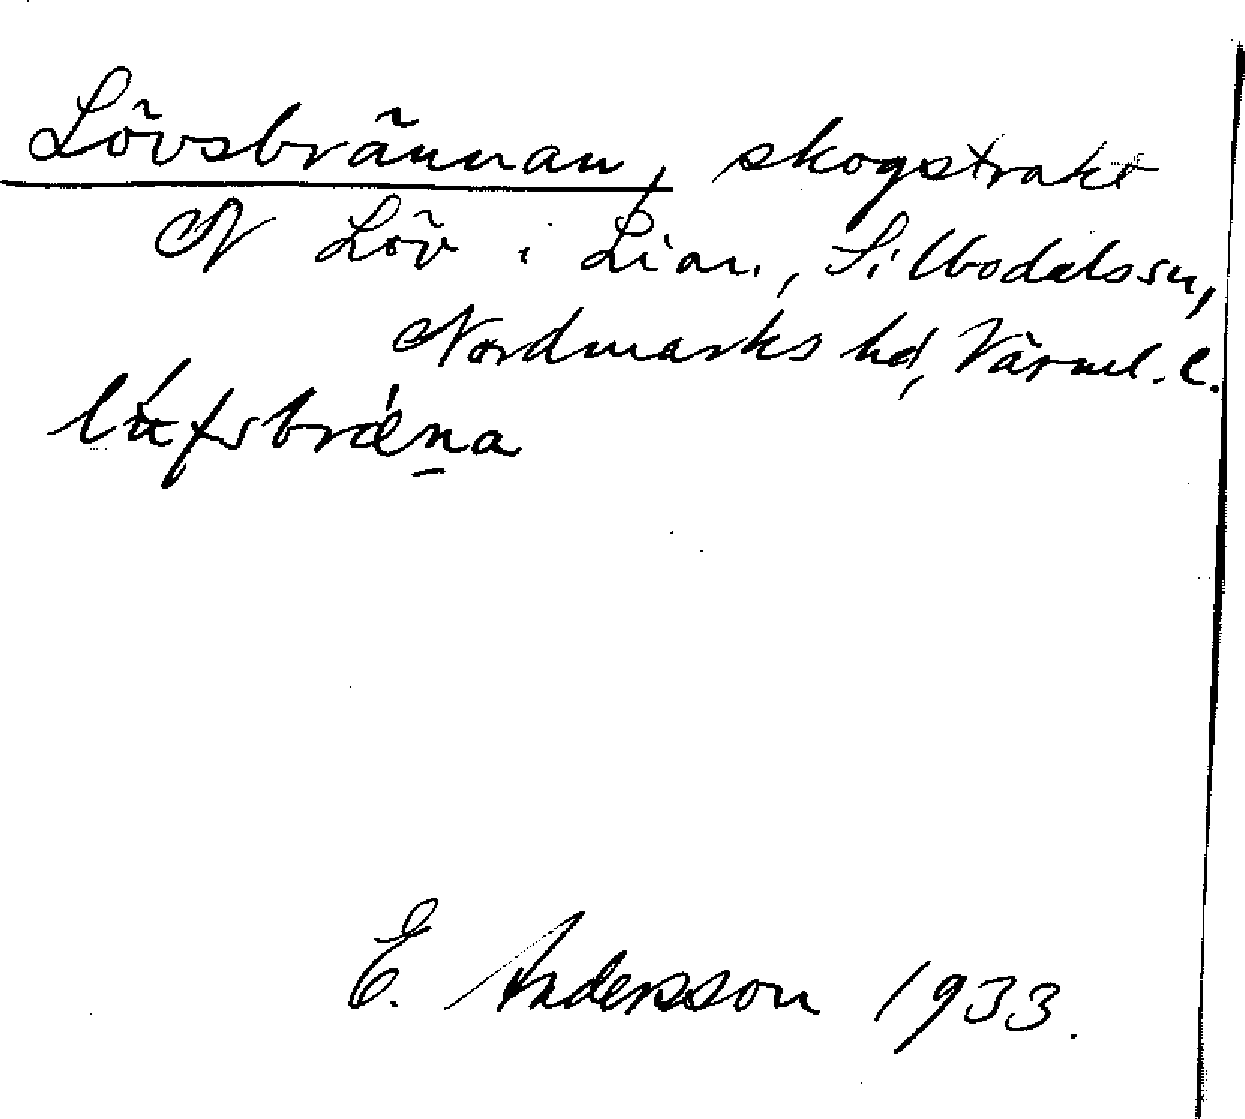 Lövsbrännan, skogstrakt
N Löv i Lian, Silbodalssn,
Nordmarks hd, Värml. l.
E. Andersson 1933.